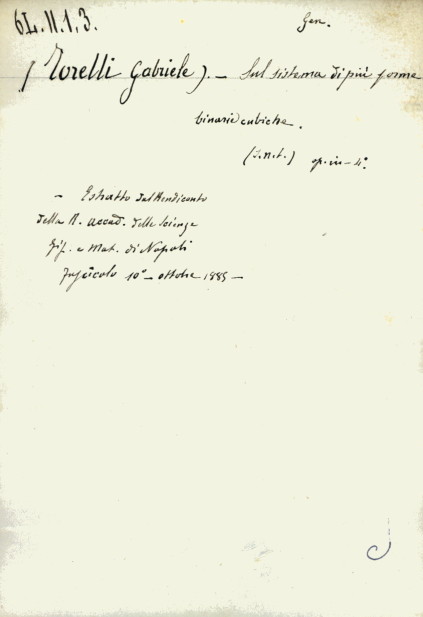 6L.11.1,3.
Gen.
(Torelli Gabriele). — Sul sistema di più forme
binarie cubiche.
(s.n.t.) op. in-4°.
— Estratto dal Rendiconto
della R. Accad. delle Scienze
Fis. e Mat. di Napoli
fascicolo 10° — ottobre 1885 —